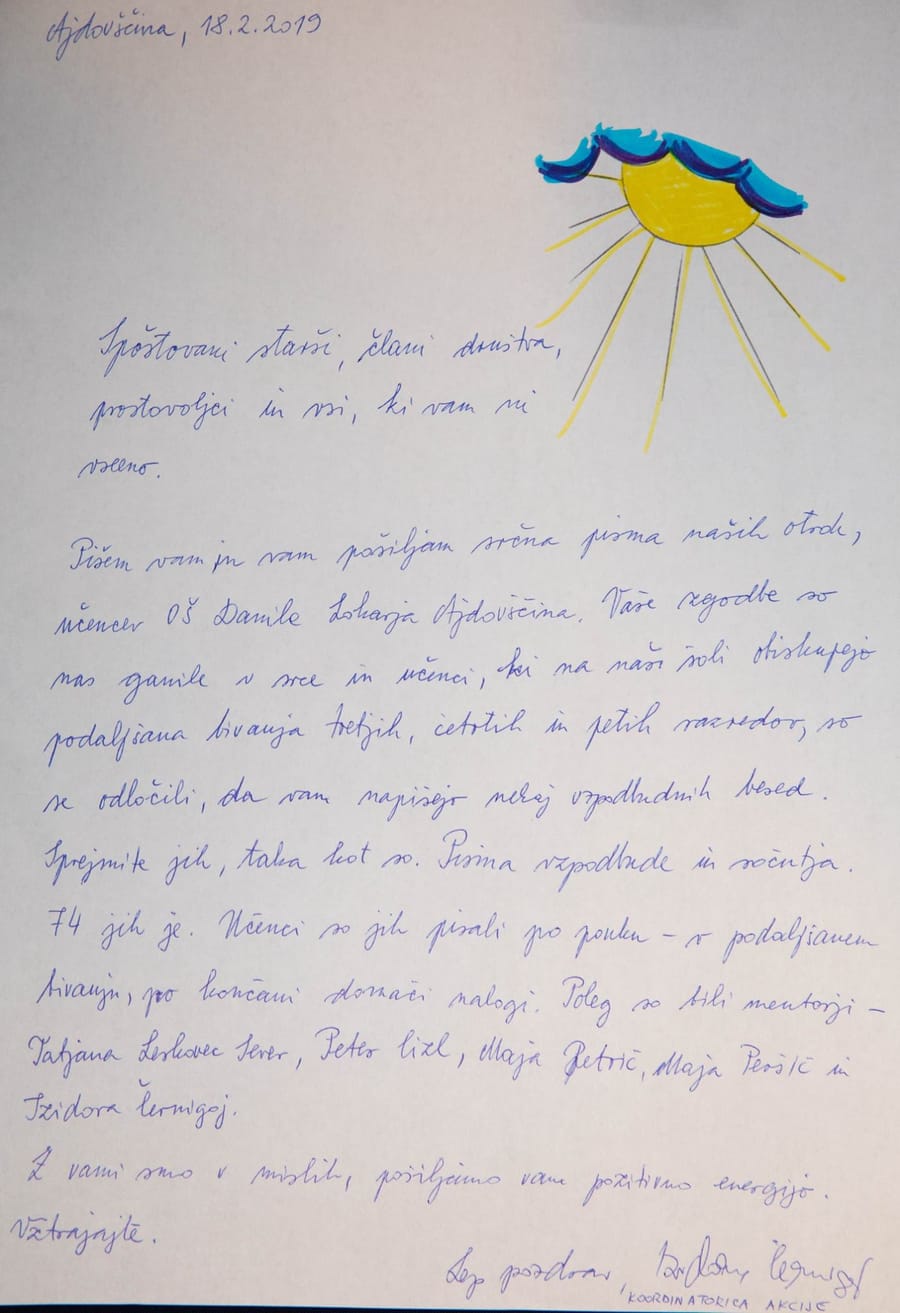 Ajdovščina, 18.2.2019
Spoštovani starši, člani društva,
prostovoljci in vsi, ki vam ni
vseeno.
Pišem vam in vam pošiljam srčna pisma naših otrok,
učencev OŠ Danila Lokarja Ajdovščina. Vaše zgodbe so
nas ganile v srce in učenci, ki na naši šoli obiskujejo
podaljšana bivanja tretjih, četrtih in petih razredov, so
se odločili, da vam napišejo nekaj vzpodbudnih besed.
Sprejmite jih, taka kot so. Pisma vzpodbude in sočutja.
74 jih je. Učenci so jih pisali po pouku – v podaljšanem
bivanju, po končani domači nalogi. Poleg so bili mentorji –
Tatjana Leskovec Sever, Peter Cizl, Maja Petrič, Maja Peršič in
Izidora Černigoj.
Z vami smo v mislih, pošiljamo vam pozitivno energijo.
Vztrajajte.
Lep pozdrav, Izidora Černigoj
KOORDINATORICA AKCIJE